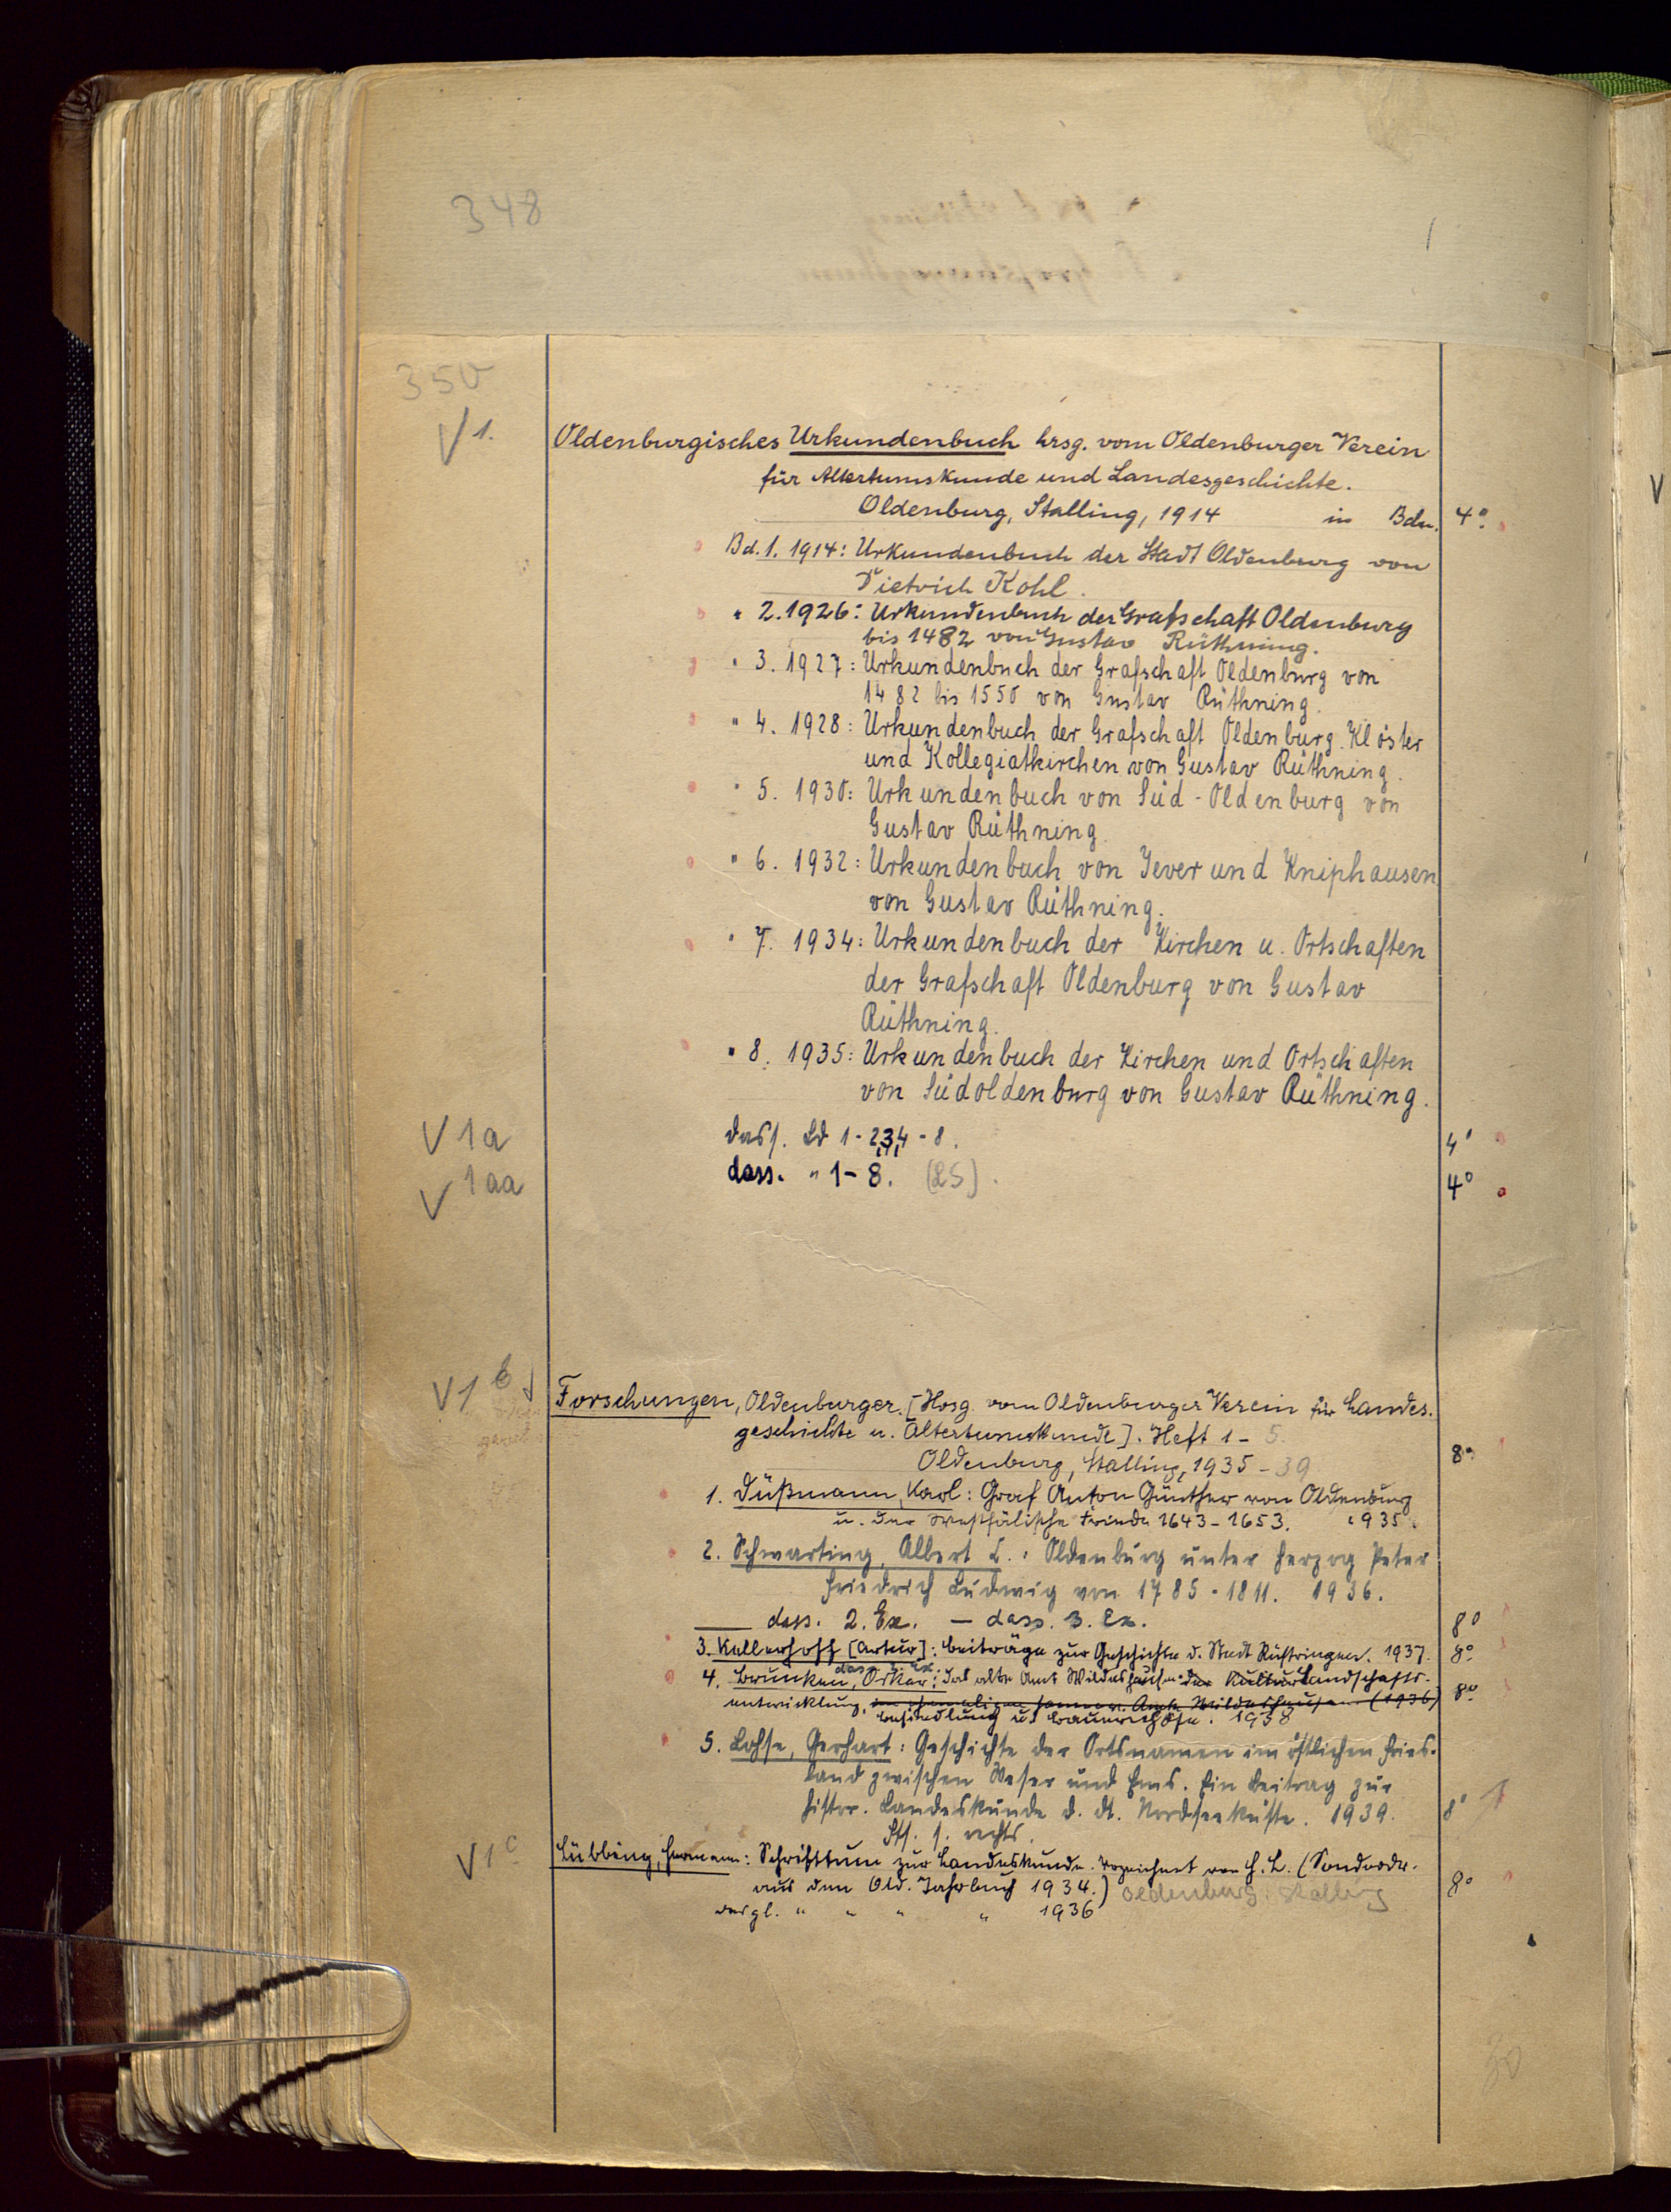 348
350
V 1.
Oldenburgisches Urkundenbuch hrsg. vom Oldenburger Verein
für Altertumskunde und Landesgeschichte.
Oldenburg, Stalling, 1914 in Bdn. 4°.
Bd. 1. 1914: Urkundenbuch der Stadt Oldenburg von
Dietrich Kohl.
" 2. 1926: Urkundenbuch der Grafschaft Oldenburg
bis 1482 von Gustav Rüthning.
" 3. 1927: Urkundenbuch der Grafschaft Oldenburg von
1482 bis 1550 von Gustav Rüthning.
" 4. 1928: Urkundenbuch der Grafschaft Oldenburg. Klöster
und Kollegiatkirchen von Gustav Rüthning.
" 5. 1930: Urkundenbuch von Süd-Oldenburg von
Gustav Rüthning.
" 6. 1932: Urkundenbuch von Jever und Kniphausen
von Gustav Rüthning.
" 7. 1934: Urkundenbuch der Kirchen u. Ortschaften
der Grafschaft Oldenburg von Gustav
Rüthning.
" 8. 1935: Urkundenbuch der Kirchen und Ortschaften
von Südoldenburg von Gustav Rüthning.
V 1a dass. Bd 1-2,3,4-8. 4°
V 1aa dass. " 1-8. (LS). 4°
V 1b
Forschungen, Oldenburger. [Hrsg. vom Oldenburger Verein für Landes-
geschichte u. Altertumskunde]. Heft 1-5.
Oldenburg, Stalling, 1935-39 8°
1. Düßmann, Karl: Graf Anton Günther von Oldenburg
u. der Westfälische Friede 1643-1653. 1935.
2. Schwarting, Albert L.: Oldenburg unter Herzog Peter
Friedrich Ludwig von 1785-1811. 1936.
dass. 2. Ex. — dass. 3. Ex. 8°
3. Kallerhoff [Artur]: Beiträge zur Geschichte d. Stadt Rüstringen. 1937. 8°
4. Brunken, Oskar: Das alte Amt Wildeshausen. der Kulturlandschafts-
entwicklung, im ehemaligen hannov. Amte Wildeshausen (1936) 8°
Besiedlung u. Bauernhöfe. 1938
5. Lohse, Gerhart: Geschichte der Ortsnamen im östlichen Fries-
land zwischen Weser und Ems. Ein Beitrag zur
histor. Landeskunde d. dt. Nordseeküste. 1939. 8°
s. rechts.
V 1c
Lübbing, Hermann: Schrifttum zur Landeskunde. Verzeichnet von H. L. (Sonderdr.
aus dem Old. Jahrbuch 1934.) Oldenburg: Stalling 8°
desgl. " " " " 1936
30